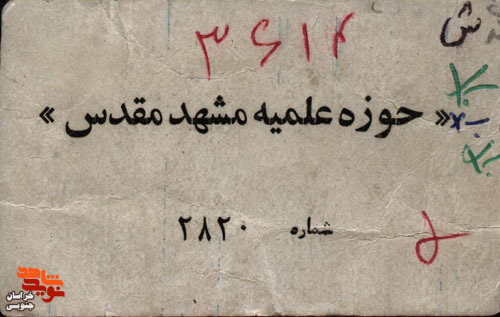 ش
۳۶۱۴
« حوزه علمیه مشهد مقدس »
شماره ۲۸۲۰
نوید شاهد
خراسان جنوبی